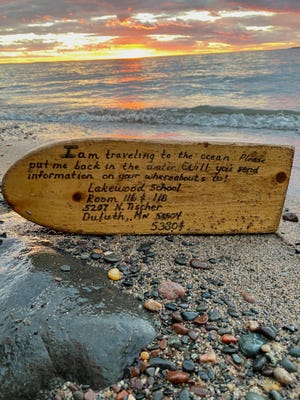 I am traveling to the ocean Please
put me back in the water. Will you send
information on your whereabouts to!
Lakewood School
Room 116 & 118
5207 N. Tischer
Duluth, MN 55804
55804